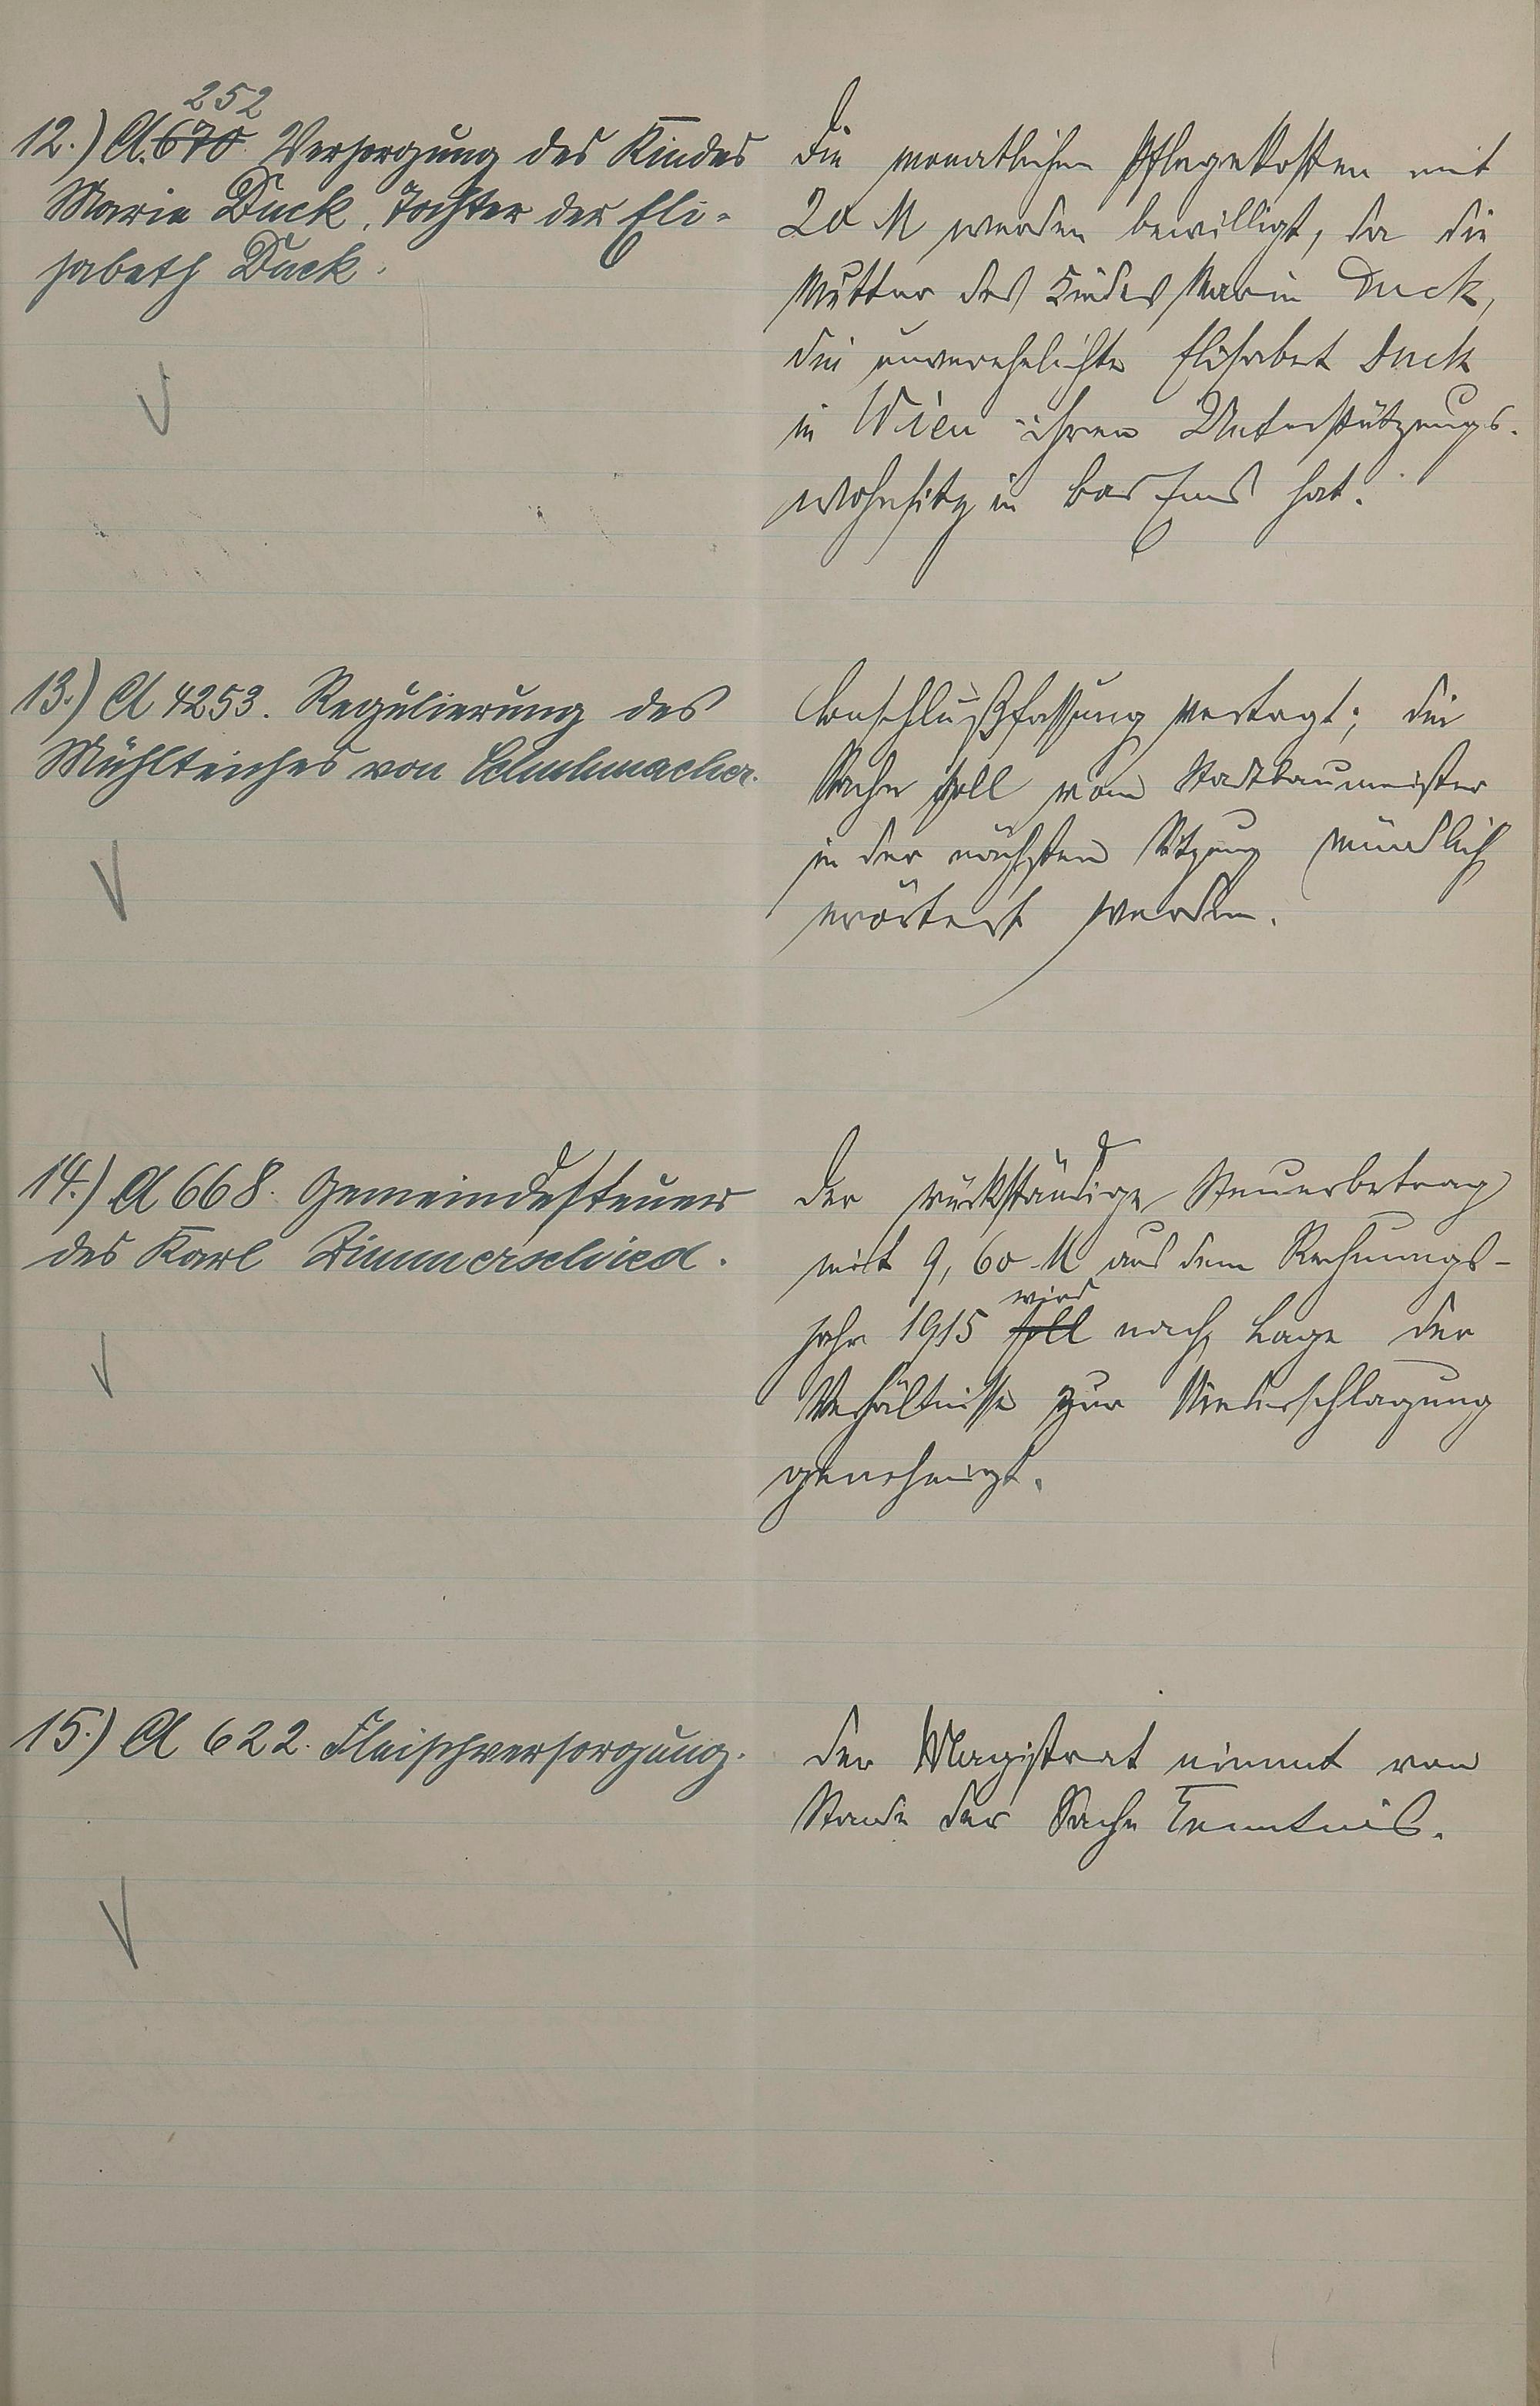 252
12.) A. 670 Versorgung des Kindes
Marie Duck, Tochter der Eli-
sabeth Duck.
Die monatlichen Pflegekosten mit
20 M werden bewilligt, da die
Mutter des Kindes Marie Duck,
die unverehelichte Elisabet Duck
in Wien ihren Unterstützungs-
wohnsitz in Bad Ems hat.
13.) A 4253. Regulierung des
Mühlteiches von Schuhmacher.
Beschlußfassung vertagt; die
Sache soll vom Stadtbaumeister
in der nächsten Sitzung mündlich
erörtert werden.
14.) A 668. Gemeindesteuer
des Karl Zimmerschied.
Der rückständige Steuerbetrag
mit 9,60 M aus dem Rechnungs-
wird
jahr 1915 soll nach Lage der
Verhältnisse zur Niederschlagung
genehmigt.
15.) A 622. Fleischversorgung.
Der Magistrat nimmt von
Stande der Sache Kenntnis.